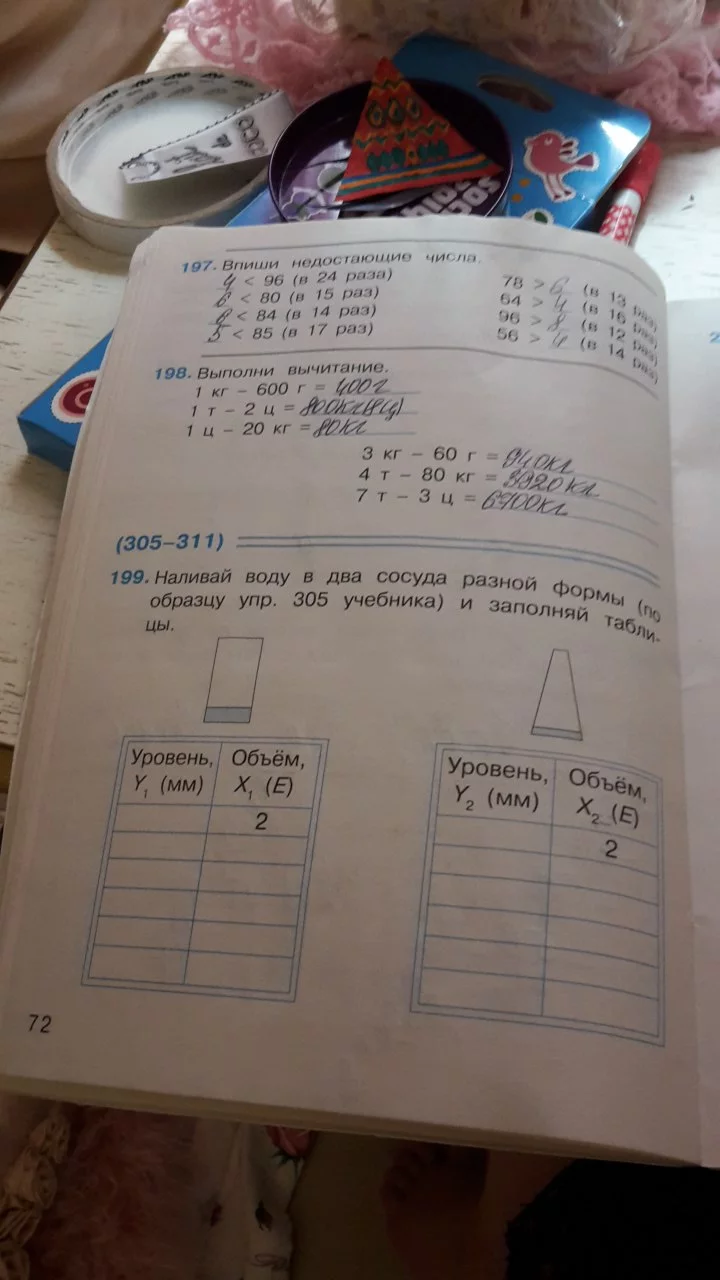 197. Впиши недостающие числа.
4 < 96 (в 24 раза)
< 80 (в 15 раз)
6 < 84 (в 14 раз)
5 < 85 (в 17 раз)
78 > 6 (в 13 раз)
64 > 4 (в 16 раз)
96 > 8 (в 12 раз)
56 > 4 (в 14 раз)
198. Выполни вычитание.
1 кг – 600 г = 400 г
1 т – 2 ц = 800кг(8ц)
1 ц – 20 кг = 80кг
3 кг – 60 г = 940кг
4 т – 80 кг = 3920 кг
7 т – 3 ц = 6700кг
(305–311)
199. Наливай воду в два сосуда разной формы (по
образцу упр. 305 учебника) и заполняй табли-
цы.
Уровень, Y₁ (мм) Объём, X₁ (E)
2
Уровень, Y₂ (мм) Объём, X₂ (E)
2
72